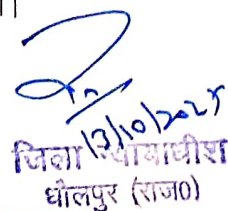 13/10/2025
जिला न्यायाधीश
धौलपुर (राज0)